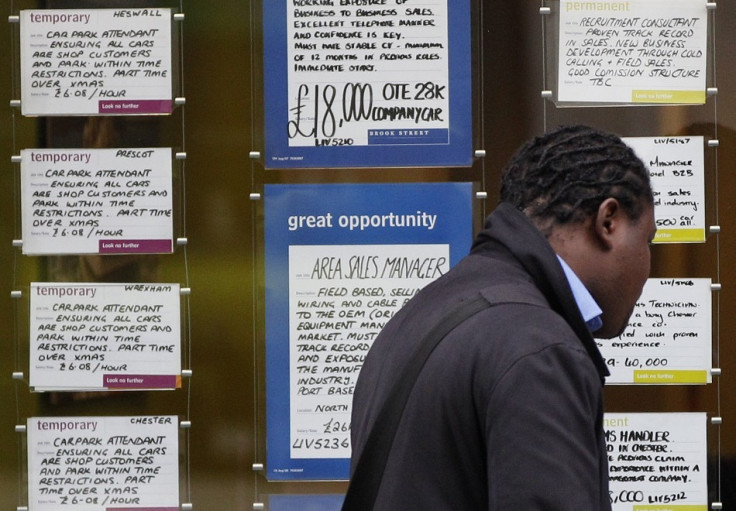 temporary HESWALL
CAR PARK ATTENDANT
ENSURING ALL CARS
ARE SHOP CUSTOMERS
AND PARK WITHIN TIME
RESTRICTIONS. PART TIME
OVER XMAS
£6.08/HOUR
Look no further
temporary PRESCOT
CAR PARK ATTENDANT
ENSURING ALL CARS
ARE SHOP CUSTOMERS AND
PARK WITHIN TIME
RESTRICTIONS. PART TIME
OVER XMAS
£6.08/HOUR
Look no further
temporary WREXHAM
CAR PARK ATTENDANT
ENSURING ALL CARS
ARE SHOP CUSTOMERS AND
PARK WITHIN TIME
RESTRICTIONS. PART TIME
OVER XMAS
£6.08/HOUR
Look no further
temporary CHESTER
CAR PARK ATTENDANT
ENSURING ALL CARS
ARE SHOP CUSTOMERS
AND PARK WITHIN TIME
RESTRICTIONS. PART
TIME OVER XMAS
£6-08/HOUR
WORKING EXPOSURE OF
BUSINESS TO BUSINESS SALES.
EXCELLENT TELEPHONE MANNER
AND CONFIDENCE IS KEY.
MUST HAVE STABLE CV - MINIMUM
OF 12 MONTHS IN PREVIOUS ROLES.
IMMEDIATE START.
£18,000 OTE 28K
COMPANY CAR
LIV5210
BROOK STREET
great opportunity
AREA SALES MANAGER
FIELD BASED, SELLI
WIRING AND CABLE
TO THE OEM (ORI
EQUIPMENT MAN
MARKET. MUST
TRACK RECORD
AND EXPOSU
THE MANUF
INDUSTRY.
PORT BASE
NORTH
£26
LIV5236
permanent
RECRUITMENT CONSULTANT
PROVEN TRACK RECORD
IN SALES. NEW BUSINESS
DEVELOPMENT THROUGH COLD
CALLING & FIELD SALES.
GOOD COMISSION STRUCTURE
TBC
MANAGER
B2B
sales
industry.
500 all.
TECHNICIAN
a busy Chester
co.
with proven
experience.
40,000
HANDLER.
IN CHESTER.
PREVIOUS CLAIM
EXPERIENCE WITHIN A
COMPANY.
,000 LIV5212